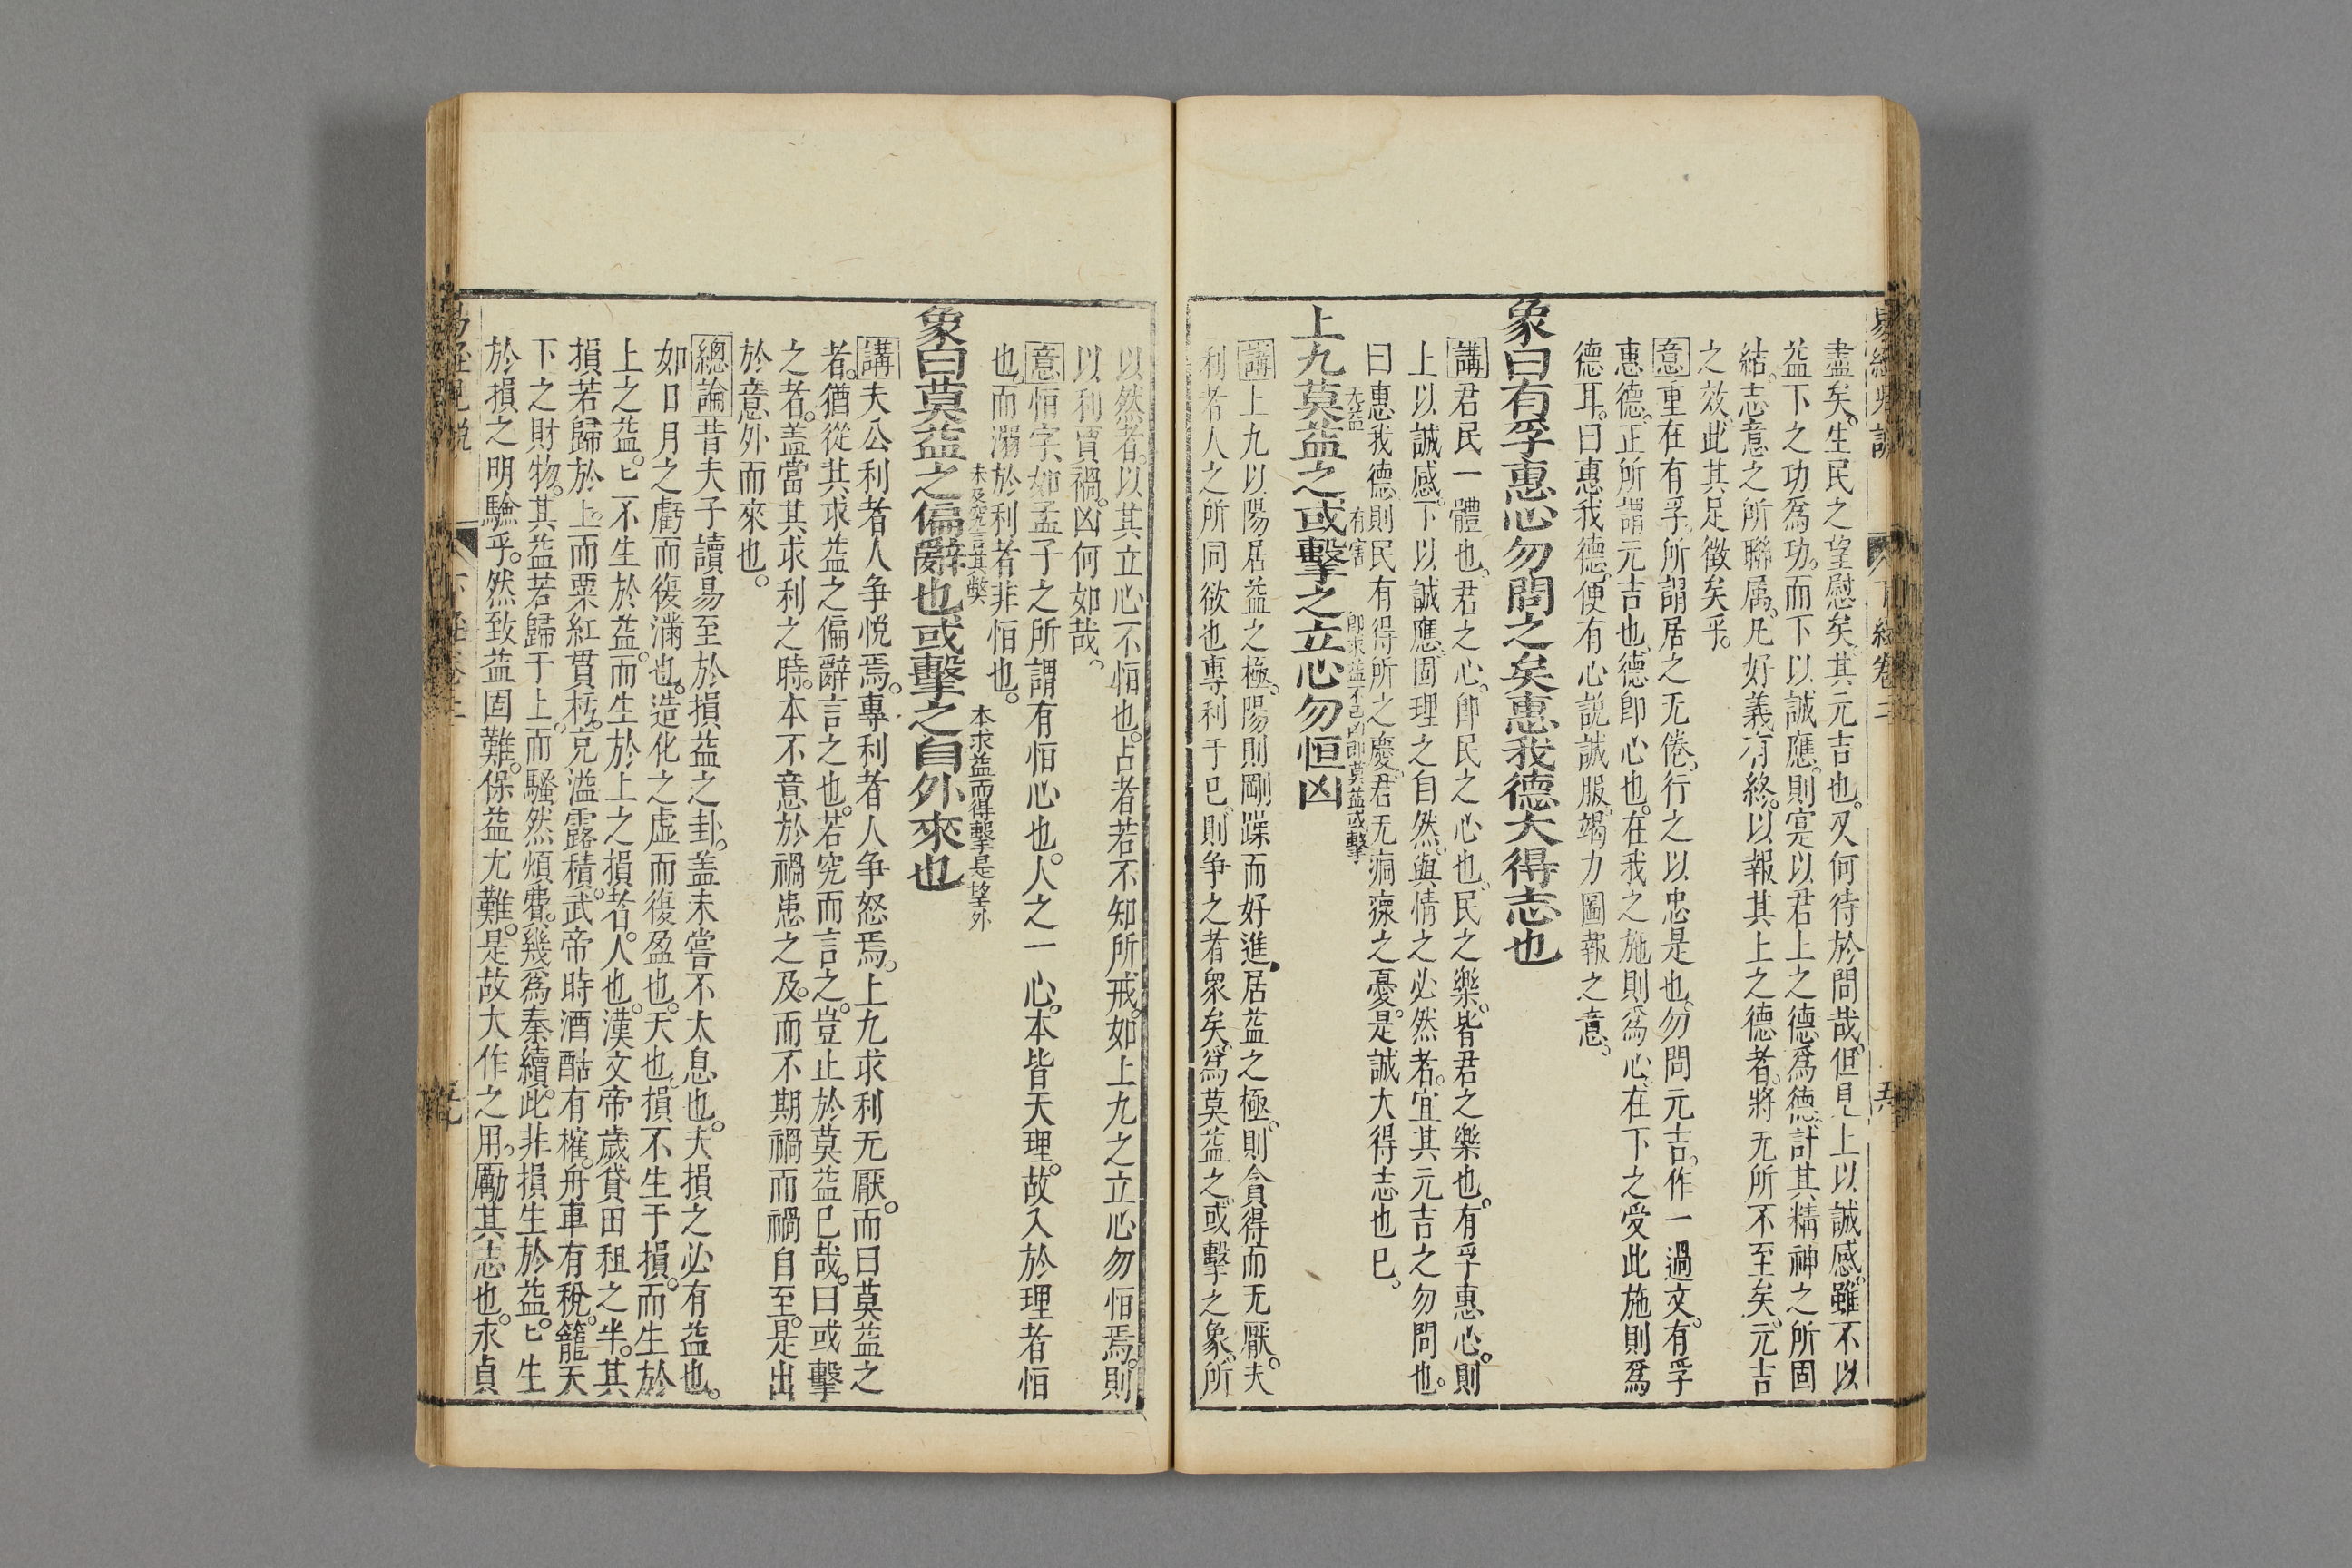 盡矣。生民之望慰矣。其元吉也。又何待於問哉。但見上以誠感。雖不以
益下之功爲功。而下以誠應。則寔以君上之德爲德。計其精神之所固
結。志意之所聯属。凡好義有終。以報其上之德者。將无所不至矣。元吉
之效。此其足徵矣乎。
意重在有孚。所謂居之无倦。行之以忠是也。勿問元吉。作一過文。有孚
惠德。正所謂元吉也。德即心也。在我之施則爲心。在下之受此施則爲
德耳。曰惠我德。便有心説誠服。竭力圖報之意。
象曰有孚惠心勿問之矣惠我德大得志也
講君民一體也。君之心。即民之心也。民之樂。皆君之樂也。有孚惠心。則
上以誠感。下以誠應。固理之自然。與情之必然者。宜其元吉之勿問也。
曰惠我德。則民有得所之慶。君无痌瘝之憂。是誠大得志也已。
无益 有害 即求益不已凶即莫益或擊
上九莫益之或擊之立心勿恒凶
講上九以陽居益之極。陽則剛躁而好進。居益之極。則貪得而无厭。夫
利者人之所同欲也。專利于已。則争之者衆矣。爲莫益之。或擊之象。所
以然者。以其立心不恒也。占者若不知所戒。如上九之立心勿恒焉。則
以利賈禍。凶何如哉。
意恒字。如孟子之所謂有恒心也。人之一心。本皆天理。故入於理者恒
也。而溺於利者非恒也。
未及究言其獘 本求益而得擊是望外
象曰莫益之偏辭也或擊之自外來也
講夫公利者人争悅焉。專利者人争怒焉。上九求利无厭。而曰莫益之
者。猶從其求益之偏辭言之也。若究而言之。豈止於莫益已哉。曰或擊
之者。盖當其求利之時。本不意於禍患之及。而不期禍而禍自至。是出
於意外而來也。
總論昔夫子讀易至於損益之卦。盖未嘗不太息也。夫損之必有益也。
如日月之虧而復滿也。造化之虚而復盈也。天也。損不生于損。而生於
上之益。匕不生於益。而生於上之損者。人也。漢文帝歲貸田租之半。其
損若歸於上。而粟紅貫朽。克溢露積。武帝時酒酤有榷。舟車有稅。籠天
下之財物。其益若歸于上。而騷然煩費。幾爲秦續。此非損生於益。匕生
於損之明驗乎。然致益固難。保益尤難。是故大作之用。勵其志也。永貞